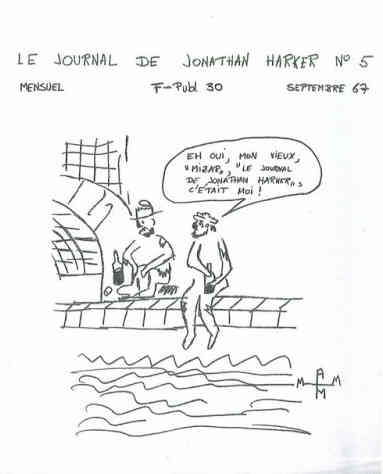 LE JOURNAL DE JONATHAN HARKER Nº 5
MENSUEL F-Publ 30 SEPTEMBRE 67
EH OUI, MON VIEUX,
"MIZAR", "LE JOURNAL
DE JONATHAN HARKER",
C'ÉTAIT MOI !
A
M M
M